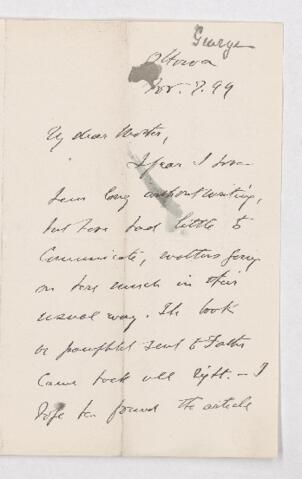 George
Ottawa
Nov. 7. 99
My dear Mother,
I fear I have
been long without writing,
but have had little to
communicate, matters going
on here much in their
usual way. The book
or pamphlet sent to Father
came back all right. — I
hope he found the article